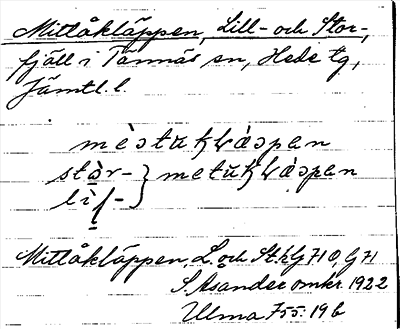 Mittåkläppen, Lill- och Stor-,
fjäll i Tännäs sn, Hede tg,
Jämtl. l.
mèstukḷwàspan
stàr- } metukḷwàspan
lìḷ-
Mittåkläppen, L. och St. hG 71 O, G 71
S. Åsander omkr. 1922
Ulma 755:19 b